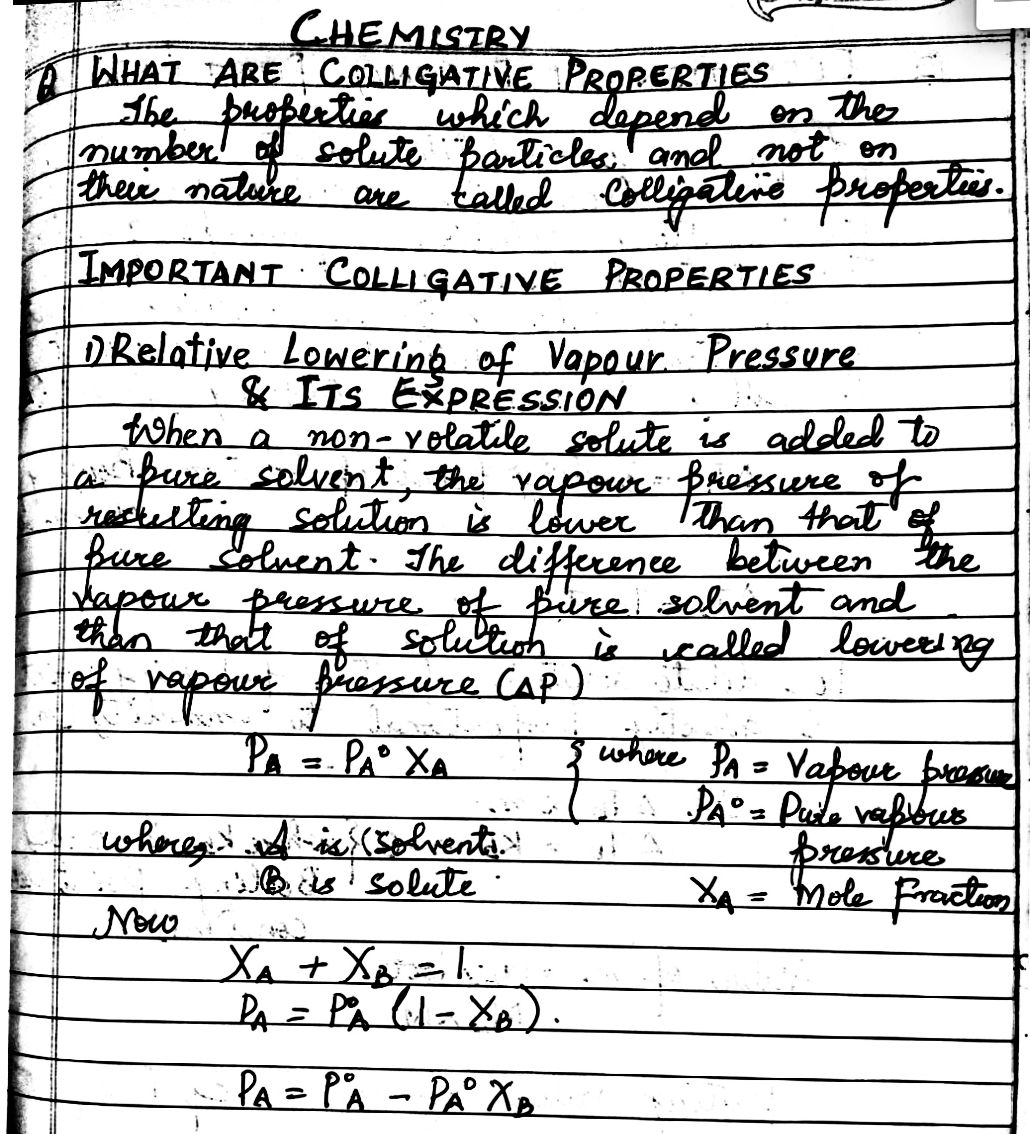 CHEMISTRY
Q WHAT ARE COLLIGATIVE PROPERTIES
The properties which depend on the
number of solute particles and not on
their nature are called Colligative properties.
IMPORTANT COLLIGATIVE PROPERTIES
1) Relative Lowering of Vapour Pressure
& ITS EXPRESSION
When a non-volatile solute is added to
a pure solvent, the vapour pressure of
resulting solution is lower than that of
pure solvent. The difference between the
vapour pressure of pure solvent and
than that of solution is called lowering
of vapour pressure (ΔP)
P_A = P_A° X_A { where P_A = Vapour pressure
P_A° = Pure vapour
where, A is (Solvent). pressure
B is solute X_A = Mole Fraction
Now
X_A + X_B = 1.
P_A = P°_A (1 - X_B).
P_A = P°_A - P_A° X_B